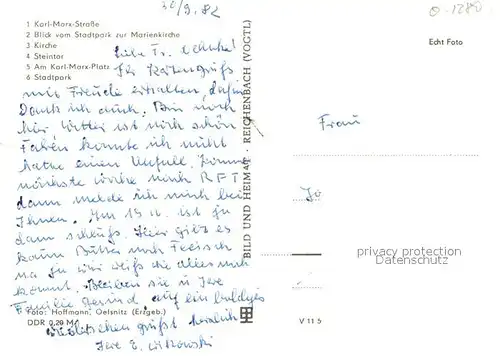 30/9. 82
0-1280
1 Karl-Marx-Straße
2 Blick vom Stadtpark zur Marienkirche
3 Kirche
4 Steintor
5 Am Karl-Marx-Platz
6 Stadtpark
Echt Foto
Liebe Fr.
Ihr Kartengruß
mit Freude erhalten, dafür
Dank ich auch. Bin noch
hier. Wetter ist noch schön
Fahren konnte ich nicht
hatte einen Unfall. Komme
nächste Woche nach BFT
dann melde ich mich bei
Ihnen. Im ist ja
dann schluß. Hier gibt es
kaum Butter und Fleisch
na ja wir weiß die alles noch
kommt. Bleiben sie u Ihre
Familie Gesund, auf ein baldiges
grüßt herzlich
Ihre E.
Frau
BILD UND HEIMAT · REICHENBACH (VOGTL)
privacy protection
Datenschutz
Foto: Hoffmann, Oelsnitz (Erzgeb.)
DDR 0,20 M
V 11 5